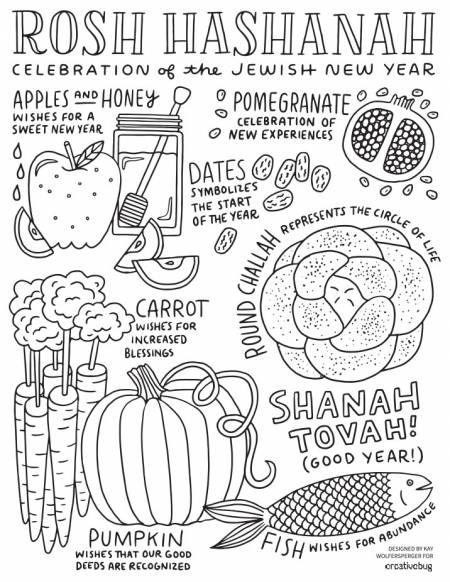 ROSH HASHANAH
CELEBRATION of the JEWISH NEW YEAR
APPLES AND HONEY
WISHES FOR A
SWEET NEW YEAR
POMEGRANATE
CELEBRATION OF
NEW EXPERIENCES
DATES
SYMBOLIZES
THE START
OF THE YEAR
ROUND CHALLAH REPRESENTS THE CIRCLE OF LIFE
CARROT
WISHES FOR
INCREASED
BLESSINGS
SHANAH
TOVAH!
(GOOD YEAR!)
PUMPKIN
WISHES THAT OUR GOOD
DEEDS ARE RECOGNIZED
FISH WISHES FOR ABUNDANCE
DESIGNED BY KAY
WOLFERSPERGER FOR
creativebug